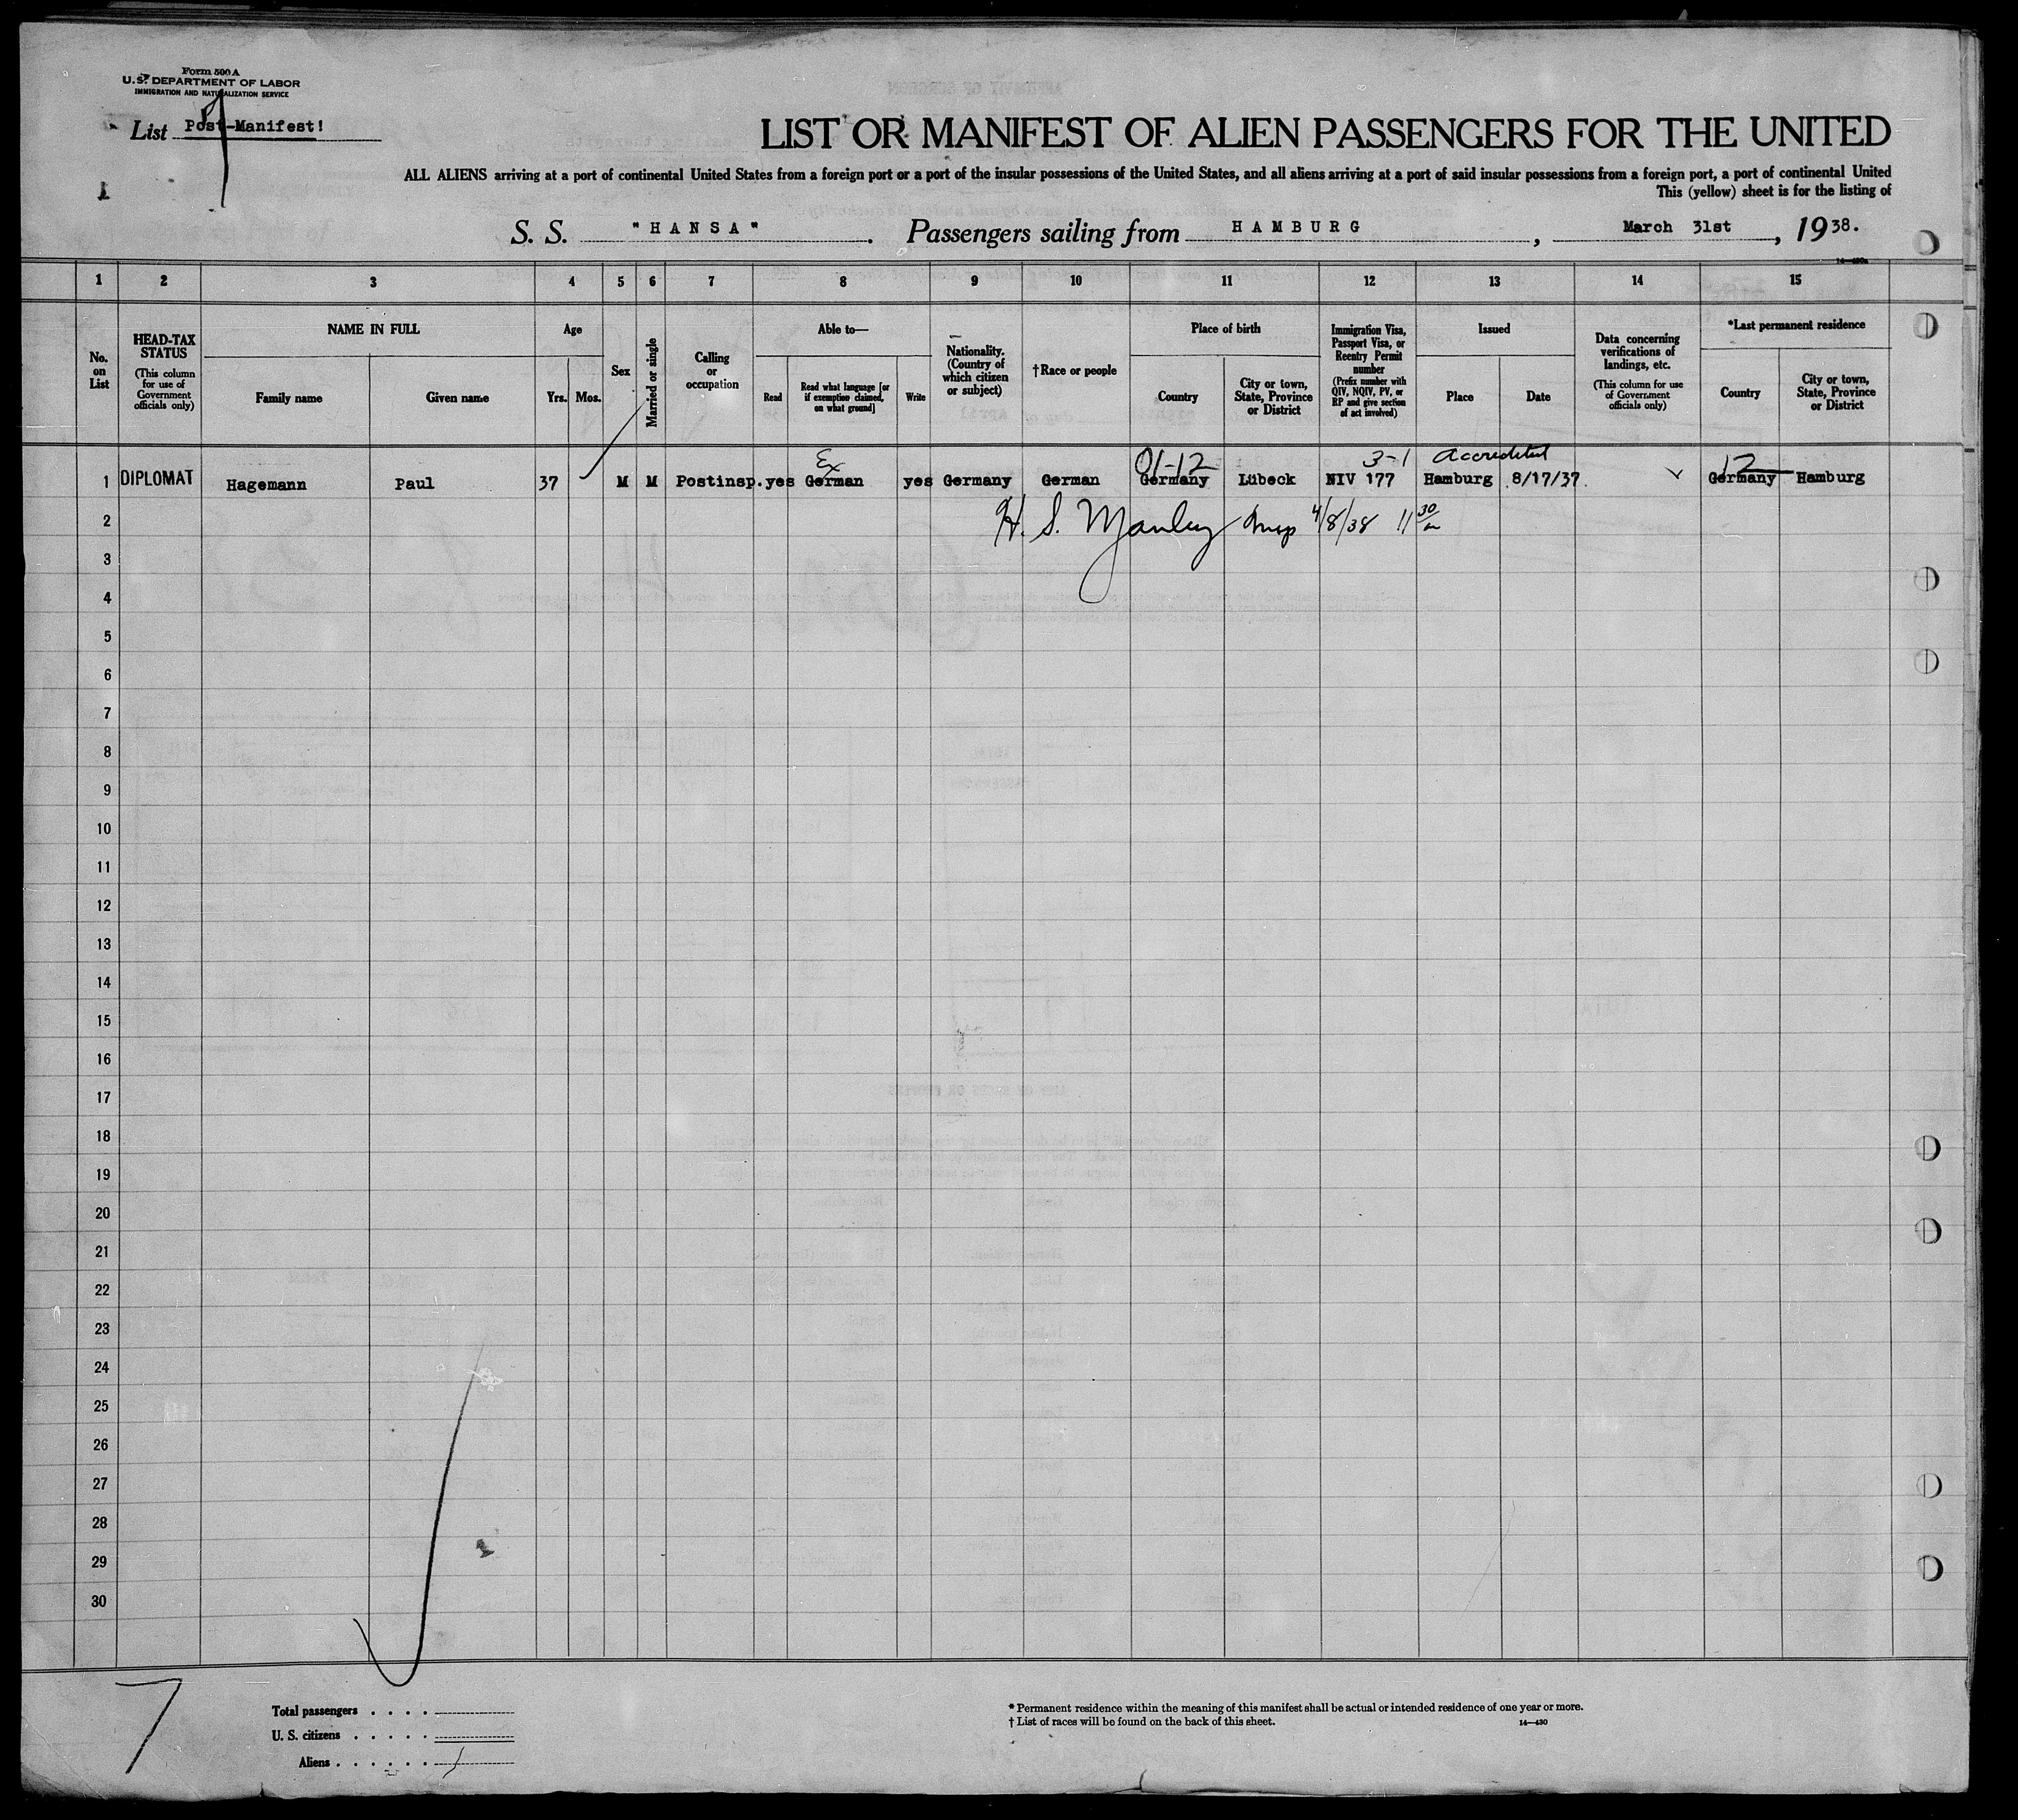 Form 500 A
U.S. DEPARTMENT OF LABOR
IMMIGRATION AND NATURALIZATION SERVICE
List Post-Manifest!
9
1
LIST OR MANIFEST OF ALIEN PASSENGERS FOR THE UNITED
ALL ALIENS arriving at a port of continental United States from a foreign port or a port of the insular possessions of the United States, and all aliens arriving at a port of said insular possessions from a foreign port, a port of continental United
This (yellow) sheet is for the listing of
S. S. "HANSA". Passengers sailing from HAMBURG, March 31st, 1938.
1 2 3 4 5 6 7 8 9 10 11 12 13 14 15
No. on List
HEAD-TAX STATUS
(This column for use of Government officials only)
NAME IN FULL
Family name
Given name
Age
Yrs. Mos.
Sex
Married or single
Calling or occupation
Able to—
Read
Read what language [or if exemption claimed, on what ground]
Write
Nationality. (Country of which citizen or subject)
†Race or people
Place of birth
Country
City or town, State, Province or District
Immigration Visa, Passport Visa, or Reentry Permit number
(Prefix number with QIV, NQIV, PV, or RP and give section of act involved)
Issued
Place
Date
Data concerning verifications of landings, etc.
(This column for use of Government officials only)
*Last permanent residence
Country
City or town, State, Province or District
Ex 01-12 3-1 Accredited 12
1 DIPLOMAT Hagemann Paul 37 M M Postinsp. yes German yes Germany German Germany Lübeck NIV 177 Hamburg 8/17/37. Germany Hamburg
2 H. S. Manley Insp 4/8/38 11 30
3
4
5
6
7
8
9
10
11
12
13
14
15
16
17
18
19
20
21
22
23
24
25
26
27
28
29
30
7
Total passengers . . . .
U. S. citizens . . . . .
Aliens . . . . . . 1
* Permanent residence within the meaning of this manifest shall be actual or intended residence of one year or more.
† List of races will be found on the back of this sheet. 14—430